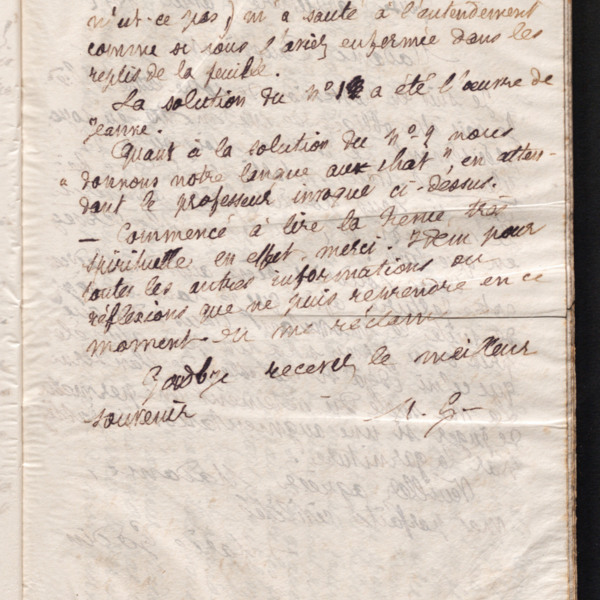 n'est-ce pas) m'a sauté à l'entendement
comme si vous l'aviez enfermée dans les
replis de la feuille.
La solution du n° 1 a été l'œuvre de
Jeanne.
Quant à la solution du n° 9 nous
donnons notre langue aux chat" en atten-
dant le professeur invoqué ci-dessus.
— Commencé à lire la Revue très
spirituelle en effet. merci. Idem pour
toutes les autres informations ou
réflexions que ne puis reprendre en ce
moment. On me réclame
Goodbye recevez le meilleur
souvenir